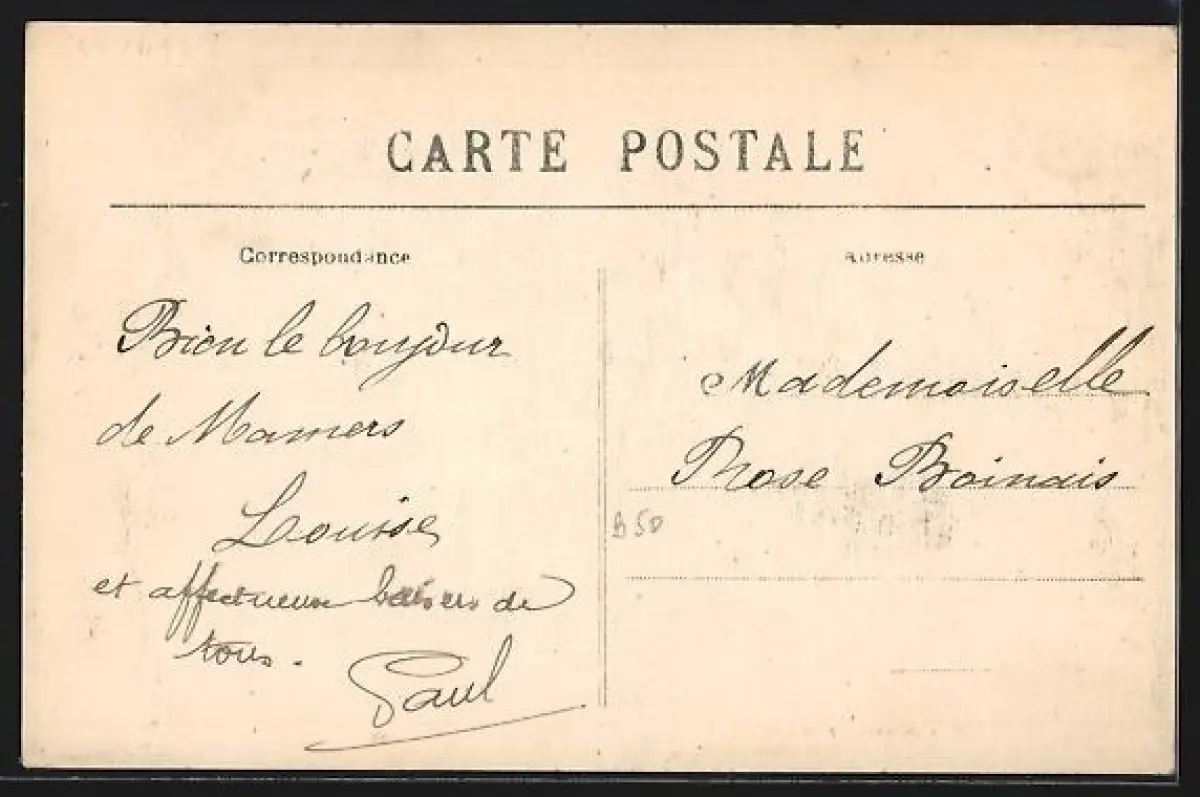 CARTE POSTALE
Correspondance
Adresse
Bien le bonjour
de Mamers
Louise
et affectueux baisers de
tous.
Paul
Mademoiselle
Rose Boinais
B50